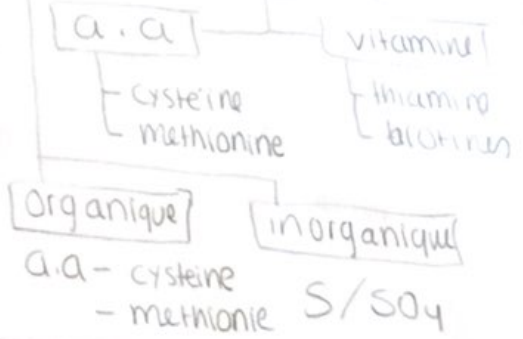 a.a
vitamine
cysteine
methionine
thiamine
biotines
organique
inorganique
a.a - cysteine
- methionie
S/SO4